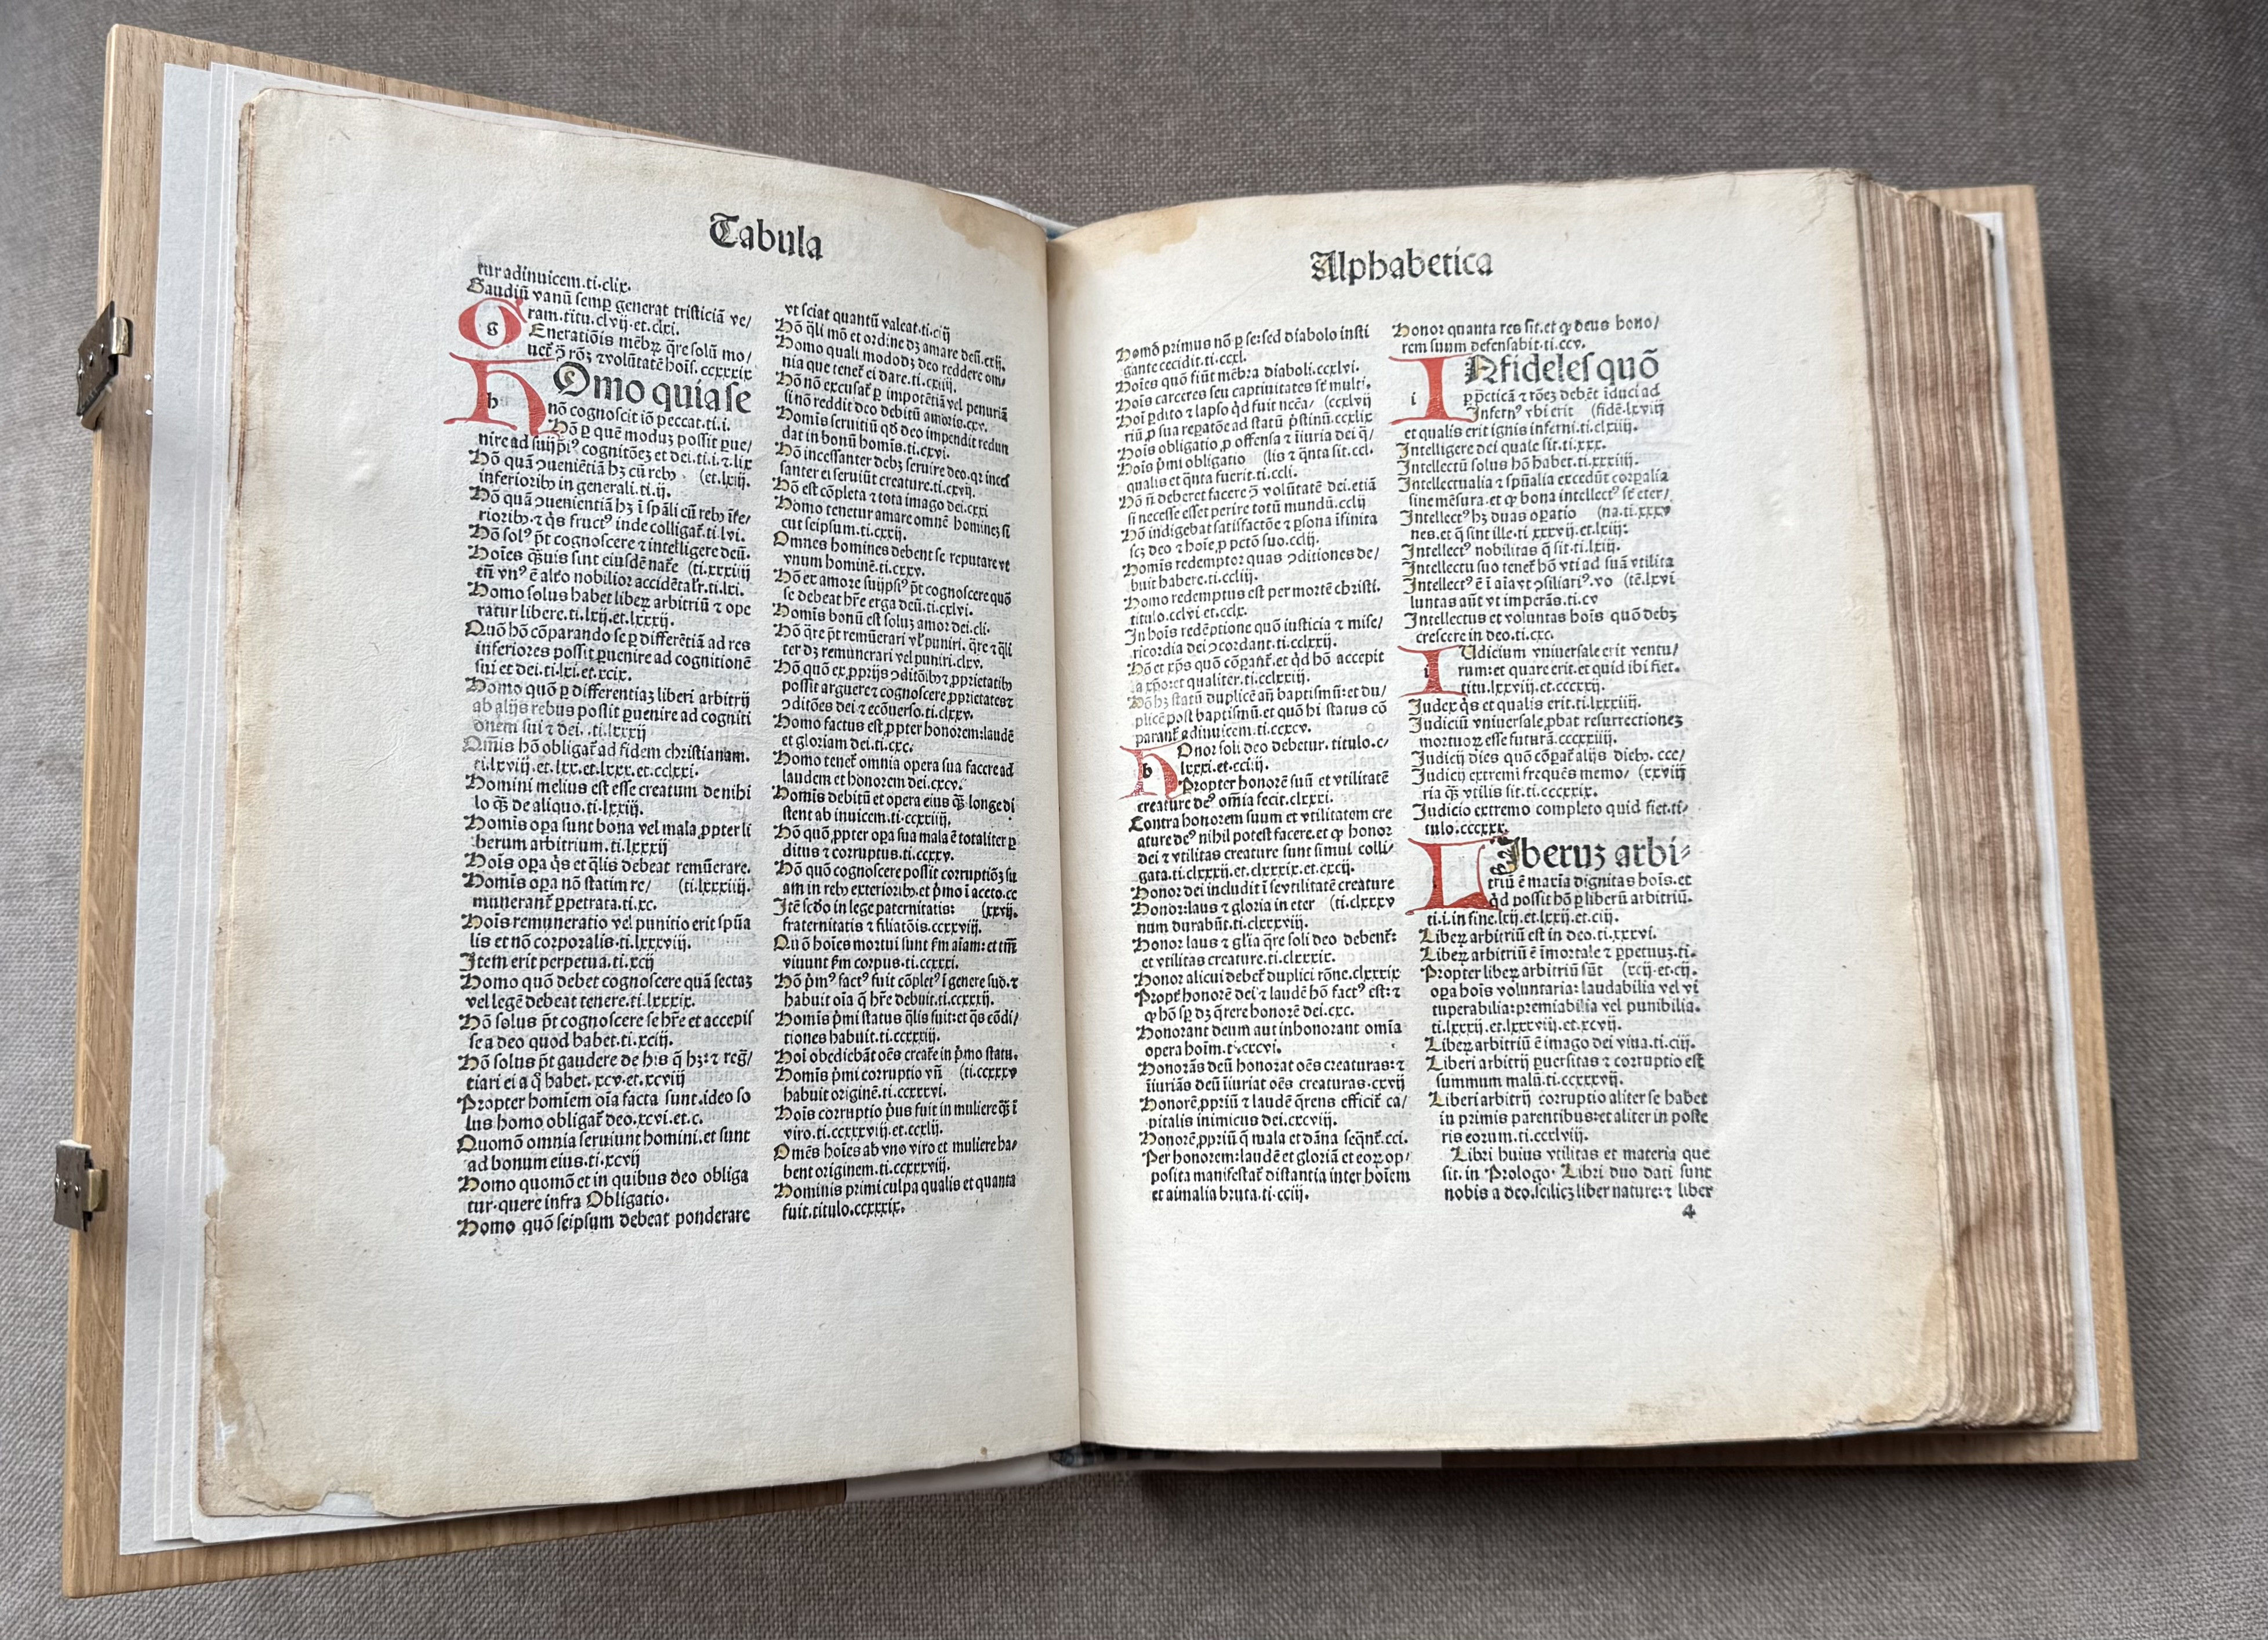 Tabula
tur adinuicem.ti.clix.
Gaudiū vanū semꝑ generat tristiciā ve/
ram.titu.clvij.et.clxi.
G g Eneratiōis mēbꝝ q̄re solū mo/
uet᷑ ꝯ̄ rōꝫ ⁊ volūtatē hoīs. ccxxxix
H h Omo quia se
nō cognoscit iō peccat.ti.i.
Hō ꝑ quē moduꝫ possit ꝑue/
nire ad suiip̄i⁹ cognitōeꝫ et dei.ti.i.⁊.lix
Hō quā ꝯueniētiā hꝫ cū rebꝰ (et.lxiij.
inferioribꝰ in generali.ti.ij.
Hō quā ꝯuenientiā hꝫ ī sp̄ali cū rebꝰ īfe/
rioribꝰ.⁊ q̇s fruct⁹ inde colligat᷑.ti.lvi.
Hō sol⁹ p̄t cognoscere ⁊ intelligere deū.
Hoīes q̄ꝫuis sint eiusdē nat᷑e (ti.xxxiiij
tn̄ vn⁹ ē alt᷑o nobilior accidētalr̄.ti.lxi.
Homo solus habet libeꝝ arbitriū ⁊ ope
ratur libere.ti.lxij.et.lxxxij.
Quō hō cōparando se ꝑ differētiā ad res
inferiores possit ꝑuenire ad cognitionē
sui et dei.ti.lxi.et.xcix.
Homo quō ꝑ differentiaꝫ liberi arbitrij
ab alijs rebus possit ꝑuenire ad cogniti
onem sui ⁊ dei. .ti.lxxxij
Om̄is hō obligat᷑ ad fidem christianam.
ti.lxviij.et.lxx.et.lxxx.et.cclxxi.
Homini melius est esse creatum de nihi
lo q̄ꝫ de aliquo.ti.lxxiij.
Homīs oꝑa sunt bona vel mala ꝓpter li
berum arbitrium.ti.lxxxij
Hoīs oꝑa q̇s et q̄lis debeat remūerare.
Homīs oꝑa nō statim re/ (ti.lxxxiiij.
munerant᷑ ꝑpetrata.ti.xc.
Hoīs remuneratio vel punitio erit spūa
lis et nō corporalis.ti.lxxxviij.
Item erit perpetua.ti.xcij
Homo quō debet cognoscere quā sectaꝫ
vel legē debeat tenere.ti.lxxxix.
Hō solus p̄t cognoscere se hr̄e et accepis
se a deo quod habet.ti.xciij.
Hō solus p̄t gaudere de his q̄ hꝫ:⁊ reg̃/
tiari ei a q̇ habet. xcv.et.xcviij
Propter homiem oīa facta sunt.ideo so
lus homo obligat᷑ deo.xcvi.et.c.
Quomō omnia seruiunt homini.et sunt
ad bonum eius.ti.xcvij
Homo quomō et in quibus deo obliga
tur.quere infra Obligatio.
Homo quō seipsum debeat ponderare
vt sciat quantū valeat.ti.cij
Hō q̄li mō et ordine dꝫ amare deū.cxij.
Homo quali mododꝫ deo reddere om/
nia que tenet᷑ ei dare.ti.cxiiij.
Hō nō excusat᷑ ꝑ impotētiā vel penuriā
si nō reddit deo debitū amoris.cxv.
Homīs seruitiū qd̄ deo impendit redun
dat in bonū homīs.ti.cxvi.
Hō incessanter debꝫ seruire deo.qꝛ inces
santer ei seruiūt creature.ti.cxvij.
Hō est cōpleta ⁊ tota imago dei.cxxi
Homo tenetur amare omnē hominеꝫ si
cut seipsum.ti.cxxij.
Omnes homines debent se reputare vt
vnum hominē.ti.cxxv.
Hō ex amore suijpsi⁹ p̄t cognoscere quō
se debeat hr̄e erga deū.ti.cxlvi.
Homīs bonū est soluꝫ amor dei.cli.
Hō q̄re p̄t remūerari vl̓ puniri, q̄re ⁊ q̄li
ter dꝫ remunerari vel puniri.clxv.
Hō quō ex ꝓprijs ꝯditōibꝰ ⁊ ꝓprietatibꝰ
possit arguere ⁊ cognoscere ꝓprietates ⁊
ꝯditōes dei ⁊ ecōuerso.ti.clxxv.
Homo factus est ꝓpter honorem:laudē
et gloriam dei.ti.cxc.
Homo tenet᷑ omnia opera sua facere ad
laudem et honorem dei.cxcv.
Homīs debitū et opera eius q̄ꝫ longe di
stent ab inuicem.ti.ccxxiiij.
Hō quō ꝓpter oꝑa sua mala ē totaliter ꝑ
ditus ⁊ corruptus.ti.ccxxv.
Hō quō cognoscere possit corruptiōꝫ su
am in rebꝰ exterioribꝰ.et p̄mo ī aceto.cc
Itē scd̓o in lege paternitatis: (xxvij.
fraternitatis ⁊ filiatōis.ccxxviij.
Quō hoīes mortui sunt ẜm aīam: et tn̄
viuunt ẜm corpus.ti.ccxxxi.
Hō p̄m⁹ fact⁹ fuit cōplet⁹ ī genere suo.⁊
habuit oīa q̄ hr̄e debuit.ti.ccxxxij.
Homīs p̄mi status q̄lis fuit:et q̇s cōdi/
tiones habuit.ti.ccxxxiij.
Hoī obediebāt oēs creat᷑e in p̄mo statu.
Homīs p̄mi corruptio vn̄ (ti.ccxxxv
habuit originē.ti.ccxxxvi.
Hoīs corruptio p̓us fuit in muliere q̄ꝫ ī
viro.ti.ccxxxviij.et.ccxlij.
Omēs hoīes ab vno viro et muliere ha/
bent originem.ti.ccxxxviij.
Hominis primi culpa qualis et quanta
fuit.titulo.ccxxxix.
Alphabetica
Homō primus nō ꝑ se:sed diabolo insti
gante cecidit.ti.ccxl.
Hoīes quō fiūt mēbꝛa diaboli.ccxlvi.
Hoīs carceres seu captiuitates st̄ multi.
Hoī ꝑdito ⁊ lapso q̇d fuit nccā/ (ccxlvij
riū ꝓ sua reꝑatōe ad statū p̄stinū.ccxlix
Hoīs obligatio ꝓ offensa ⁊ iīuria dei q̄/
Hoīs p̄mi obligatio (lis ⁊ q̄nta sit.ccl.
qualis et q̄nta fuerit.ti.ccli.
Hō n̄ deberet facere ꝯ̄ volūtatē dei.etiā
si necesse esset perire totū mundū.cclij
Hō indigebat satisfactōe ⁊ ꝑsona īfinita
scꝫ deo ⁊ hoīe ꝓ pctō suo.cclij.
Homīs redemptor quas ꝯditiones de/
buit habere.ti.ccliij.
Homo redemptus est per mortē christi.
titulo.cclvi et.cclx.
In hoīs redēptione quō iusticia ⁊ mise/
ricordia dei ꝯcordant.ti.cclxxij.
Hō et xp̄s quō cōparant᷑.et q̇d hō accepit
a xp̄o:et qualiter.ti.cclxxiij.
Hō hꝫ statū duplicē an̄ baptismū:et du/
plicē post baptismū.et quō hi status cō
parant᷑ adinuicem.ti.ccxcv.
H h Onor soli deo debetur. titulo.c/
lxxxi.et.cci.ij.
Propter honorē suū et vtilitatē
creature de⁹ om̄ia fecit.clxxxi.
Contra honorem suum et vtilitatem cre
ature de⁹ nihil potest facere.et ꝙ honor
dei ⁊ vtilitas creature sunt simul colli/
gata.ti.clxxxij.et.clxxxix.et.cxcij.
Honor dei includit ī se vtilitatē creature
Honor:laus ⁊ gloria in eter (ti.clxxxv
num durabūt.ti.clxxxviij.
Honor laus ⁊ gl̓ia q̄re soli deo debent᷑:
et vtilitas creature.ti.clxxxix.
Honor alicui debet᷑ duplici rōne.clxxxix
Propt᷑ honorē dei ⁊ laudē hō fact⁹ est:⁊
ꝙ hō sp̄ dꝫ q̄rere honorē dei.cxc.
Honorant deum aut inhonorant omīa
opera hoīm.ti.cxcvi.
Honorās deū honorat oēs creaturas:⁊
īiuriās deū īiuriat oēs creaturas.cxvij
Honorē ꝓpriū ⁊ laudē q̄rens efficit᷑ ca/
pitalis inimicus dei.cxcviij.
Honorē ꝓpriū q̄ mala et dāna seq̄nt᷑.cci.
Per honorem:laudē et gloriā et eoꝝ op/
posita manifestat᷑ distantia inter hoīem
et aīmalia bruta.ti.cciij.
Honor quanta res sit.et ꝙ deus hono/
rem suum defensabit.ti.ccv.
I i Nfideles quō
ꝑ p̄cticā ⁊ rōeꝫ debēt iduci ad
Infern⁹ vbi erit (fidē.lxviij
et qualis erit ignis inferni.ti.clxiij.
Intelligere dei quale sit.ti.xxx.
Intellectū solus hō habet.ti.xxxiiij.
Intellectualia ⁊ spūalia excedūt corꝑalia
sine mēsura.et ꝙ bona intellect⁹ st̄ eter/
Intellect⁹ hꝫ duas oꝑatio (na.ti.xxxv
nes.et q̄ sint ille.ti xxxvij.et.lxiij:
Intellect⁹ nobilitas q̄ sit.ti.lxiij.
Intellectu suo tenet᷑ hō vti ad suā vtilita
Intellect⁹ ē ī aīa vt ꝯsiliari⁹.vo (tē.lxvi
luntas aūt vt imperās.ti.cv
Intellectus et voluntas hoīs quō debꝫ
crescere in deo.ti.cxc.
I i Udicium vniuersale erit ventu/
rum:et quare erit.et quid ibi fiet.
titu.lxxviij.et.cccxxij.
Judex q̇s et qualis erit.ti.lxxxiiij.
Judiciū vniuersale ꝓbat resurrectioneꝫ
mortuoꝝ esse futurā.cccxxiiij.
Judicij dies quō cōpat᷑ alijs diebꝰ. ccc/
Judicij extremi frequēs memo/ (xxviij
ria q̄ꝫ vtilis sit.ti.cccxxix.
Judicio extremo completo quid fiet.ti/
tulo.cccxxx.
L Iberuꝫ arbi-
triū ē maxīa dignitas hoīs.et
q̇d possit hō ꝑ liberū arbitriū.
ti.i.in fine.lxij.et.lxxij.et.ciij.
Libeꝝ arbitriū est in deo.ti.xxxvi.
Libeꝝ arbitriū ē īmortale ⁊ ꝑpetuuꝫ.ti.
Propter libeꝝ arbitriū sūt (xcij.et.cij.
oꝑa hoīs voluntaria: laudabilia vel vi
tuperabilia:premiabilia vel punibilia.
ti.lxxxij.et.lxxxviij.et.xcvij.
Libeꝝ arbitriū ē imago dei viua.ti.ciij.
Liberi arbitrij ꝑuersitas ⁊ corruptio est
summum malū.ti.ccxxxvij.
Liberi arbitrij corruptio aliter se habet
in primis parentibus:et aliter in poste
ris eorum.ti.ccxlviij.
Libri huius vtilitas et materia que
sit. in Prologo. Libri duo dati sunt
nobis a deo.scilicꝫ liber nature:⁊ liber
4